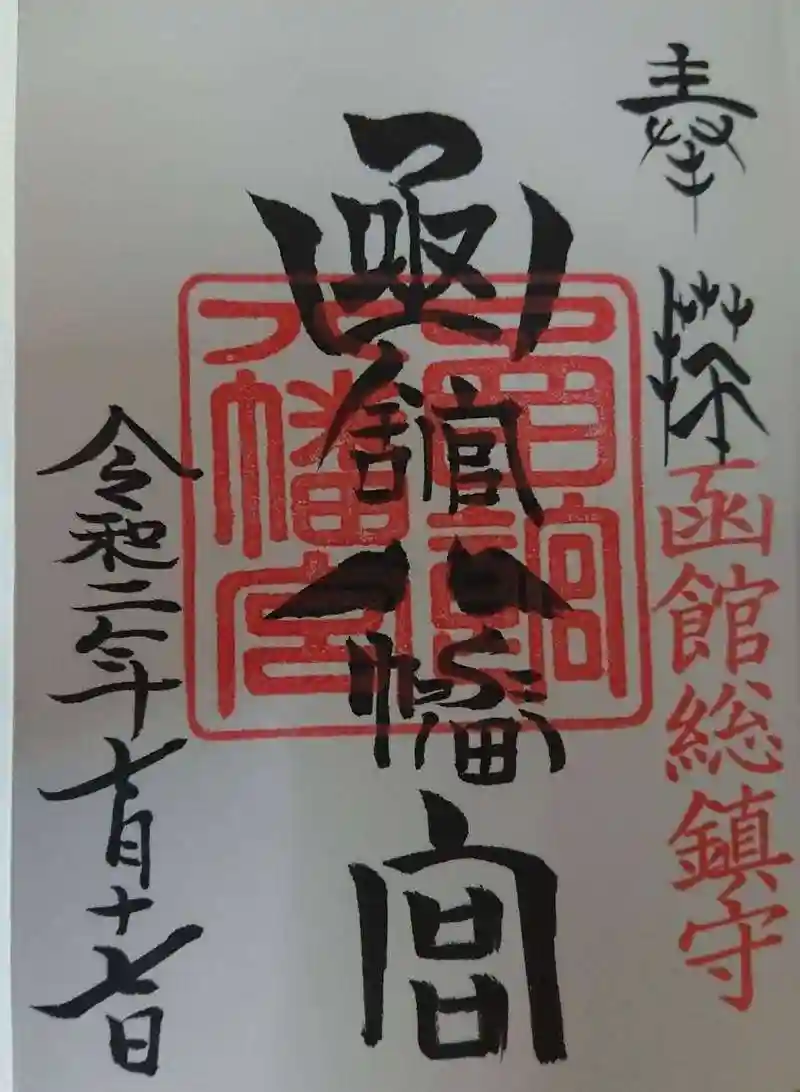 奉拝
函館総鎮守
函館八幡宮
函館
八幡宮
令和二年七月十七日